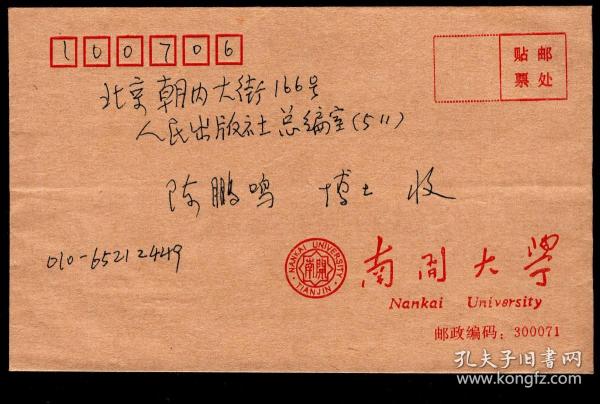 100706
贴邮
票处
北京朝内大街166号
人民出版社总编室(511)
陈鹏鸣 博士 收
010-65212449
NANKAI UNIVERSITY
南開
TIANJIN
南开大学
Nankai University
邮政编码：300071
孔夫子旧书网
www.kongfz.com